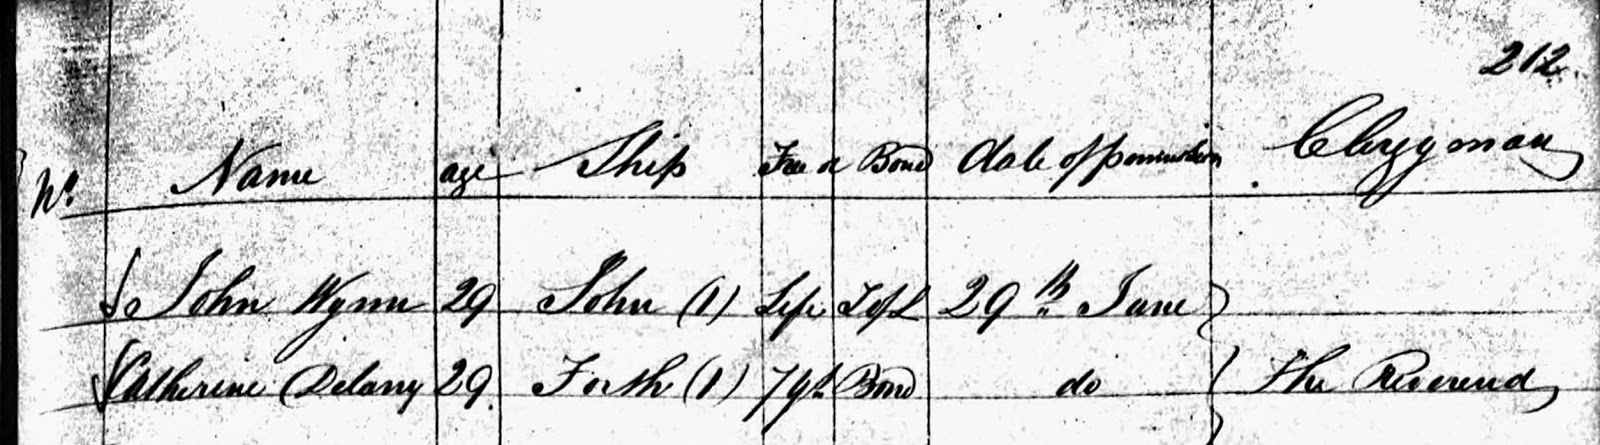 212
No. Name age Ship Free or Bond date of permission Clergyman
John Wynn 29 John (1) Life T of L 29th June
Catherine Delany 29 Forth (1) 7 yrs Bond do The Reverend